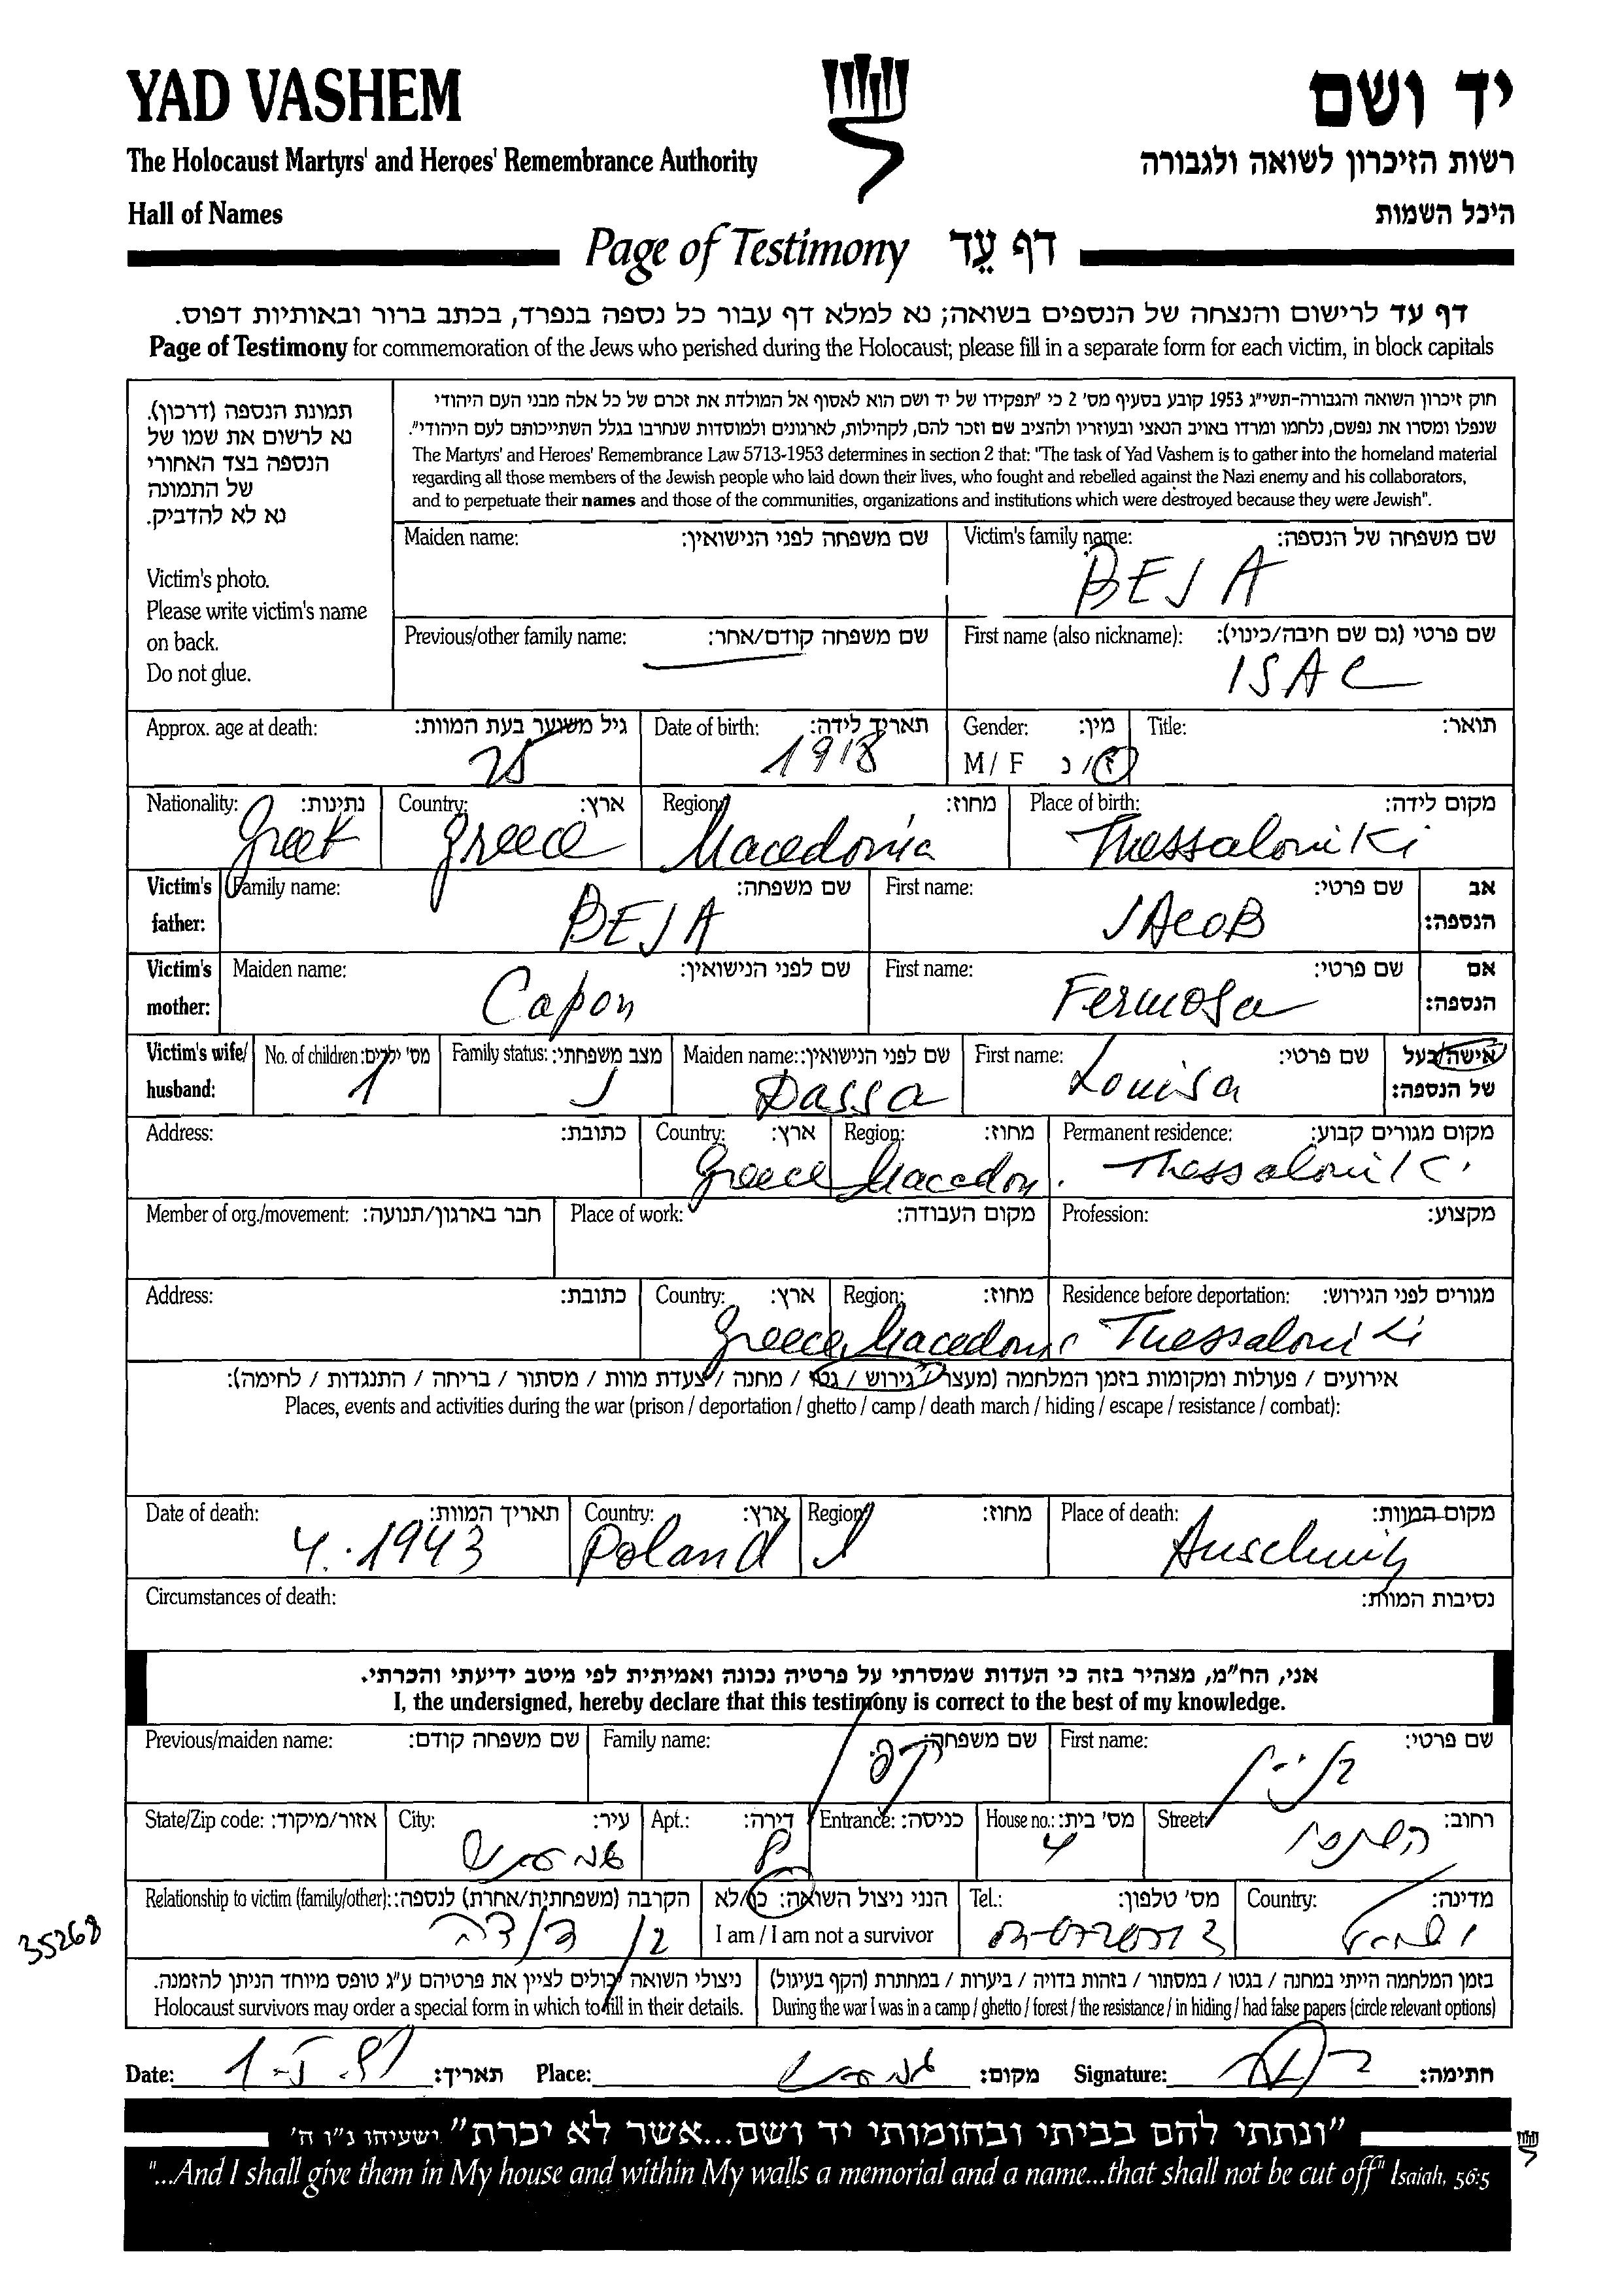 YAD VASHEM
יד ושם
The Holocaust Martyrs' and Heroes' Remembrance Authority
רשות הזיכרון לשואה ולגבורה
Hall of Names
היכל השמות
Page of Testimony דף עֵד
דף עד לרישום והנצחה של הנספים בשואה; נא למלא דף עבור כל נספה בנפרד, בכתב ברור ובאותיות דפוס.
Page of Testimony for commemoration of the Jews who perished during the Holocaust; please fill in a separate form for each victim, in block capitals
תמונת הנספה (דרכון).
נא לרשום את שמו של
הנספה בצד האחורי
של התמונה
נא לא להדביק.
Victim's photo.
Please write victim's name
on back.
Do not glue.
חוק זיכרון השואה והגבורה-תשי"ג 1953 קובע בסעיף מס' 2 כי "תפקידו של יד ושם הוא לאסוף אל המולדת את זכרם של כל אלה מבני העם היהודי
שנפלו ומסרו את נפשם, נלחמו ומרדו באויב הנאצי ובעוזריו ולהציב שם וזכר להם, לקהילות, לארגונים ולמוסדות שנחרבו בגלל השתייכותם לעם היהודי".
The Martyrs' and Heroes' Remembrance Law 5713-1953 determines in section 2 that: "The task of Yad Vashem is to gather into the homeland material
regarding all those members of the Jewish people who laid down their lives, who fought and rebelled against the Nazi enemy and his collaborators,
and to perpetuate their names and those of the communities, organizations and institutions which were destroyed because they were Jewish".
Maiden name: שם משפחה לפני הנישואין: Victim's family name: שם משפחה של הנספה:
BEJA
Previous/other family name: שם משפחה קודם/אחר: First name (also nickname): שם פרטי (גם שם חיבה/כינוי):
ISAC
Approx. age at death: גיל משוער בעת המוות: Date of birth: תאריך לידה: Gender: מין: Title: תואר:
25 1918 M / F ז / נ
Nationality: נתינות: Country: ארץ: Region: מחוז: Place of birth: מקום לידה:
Greek Greece Macedonia Thessaloniki
Victim's father: Family name: שם משפחה: First name: שם פרטי: אב הנספה:
BEJA JACOB
Victim's mother: Maiden name: שם לפני הנישואין: First name: שם פרטי: אם הנספה:
Capon Fermosa
Victim's wife/ husband: No. of children: מס' ילדים: Family status: מצב משפחתי: Maiden name: שם לפני הנישואין: First name: שם פרטי: אישה/בעל של הנספה:
1 J Dassa Louisa
Address: כתובת: Country: ארץ: Region: מחוז: Permanent residence: מקום מגורים קבוע:
Greece Macedon. Thessaloniki
Member of org./movement: חבר בארגון/תנועה: Place of work: מקום העבודה: Profession: מקצוע:
Address: כתובת: Country: ארץ: Region: מחוז: Residence before deportation: מגורים לפני הגירוש:
Greece Macedoni Thessaloniki
אירועים / פעולות ומקומות בזמן המלחמה (מעצר / גירוש / גטו / מחנה / צעדת מוות / מסתור / בריחה / התנגדות / לחימה):
Places, events and activities during the war (prison / deportation / ghetto / camp / death march / hiding / escape / resistance / combat):
Date of death: תאריך המוות: Country: ארץ: Region: מחוז: Place of death: מקום המוות:
4.1943 Poland Auschwitz
Circumstances of death: נסיבות המוות:
אני, הח"מ, מצהיר בזה כי העדות שמסרתי על פרטיה נכונה ואמיתית לפי מיטב ידיעתי והכרתי.
I, the undersigned, hereby declare that this testimony is correct to the best of my knowledge.
Previous/maiden name: שם משפחה קודם: Family name: שם משפחה: First name: שם פרטי:
State/Zip code: אזור/מיקוד: City: עיר: Apt.: דירה: Entrance: כניסה: House no.: מס' בית: Street: רחוב:
4
Relationship to victim (family/other): הקרבה (משפחתית/אחרת) לנספה: הנני ניצול השואה: כן/לא Tel.: מס' טלפון: Country: מדינה:
בן דודה I am / I am not a survivor ישראל
35268
ניצולי השואה יכולים לציין את פרטיהם ע"ג טופס מיוחד הניתן להזמנה.
Holocaust survivors may order a special form in which to fill in their details.
בזמן המלחמה הייתי במחנה / בגטו / במסתור / בזהות בדויה / ביערות / במחתרת (הקף בעיגול)
During the war I was in a camp / ghetto / forest / the resistance / in hiding / had false papers (circle relevant options)
Date: תאריך: Place: מקום: Signature: חתימה:
"ונתתי להם בביתי ובחומותי יד ושם...אשר לא יכרת" ישעיהו נ"ו ה'
"...And I shall give them in My house and within My walls a memorial and a name...that shall not be cut off" Isaiah, 56:5